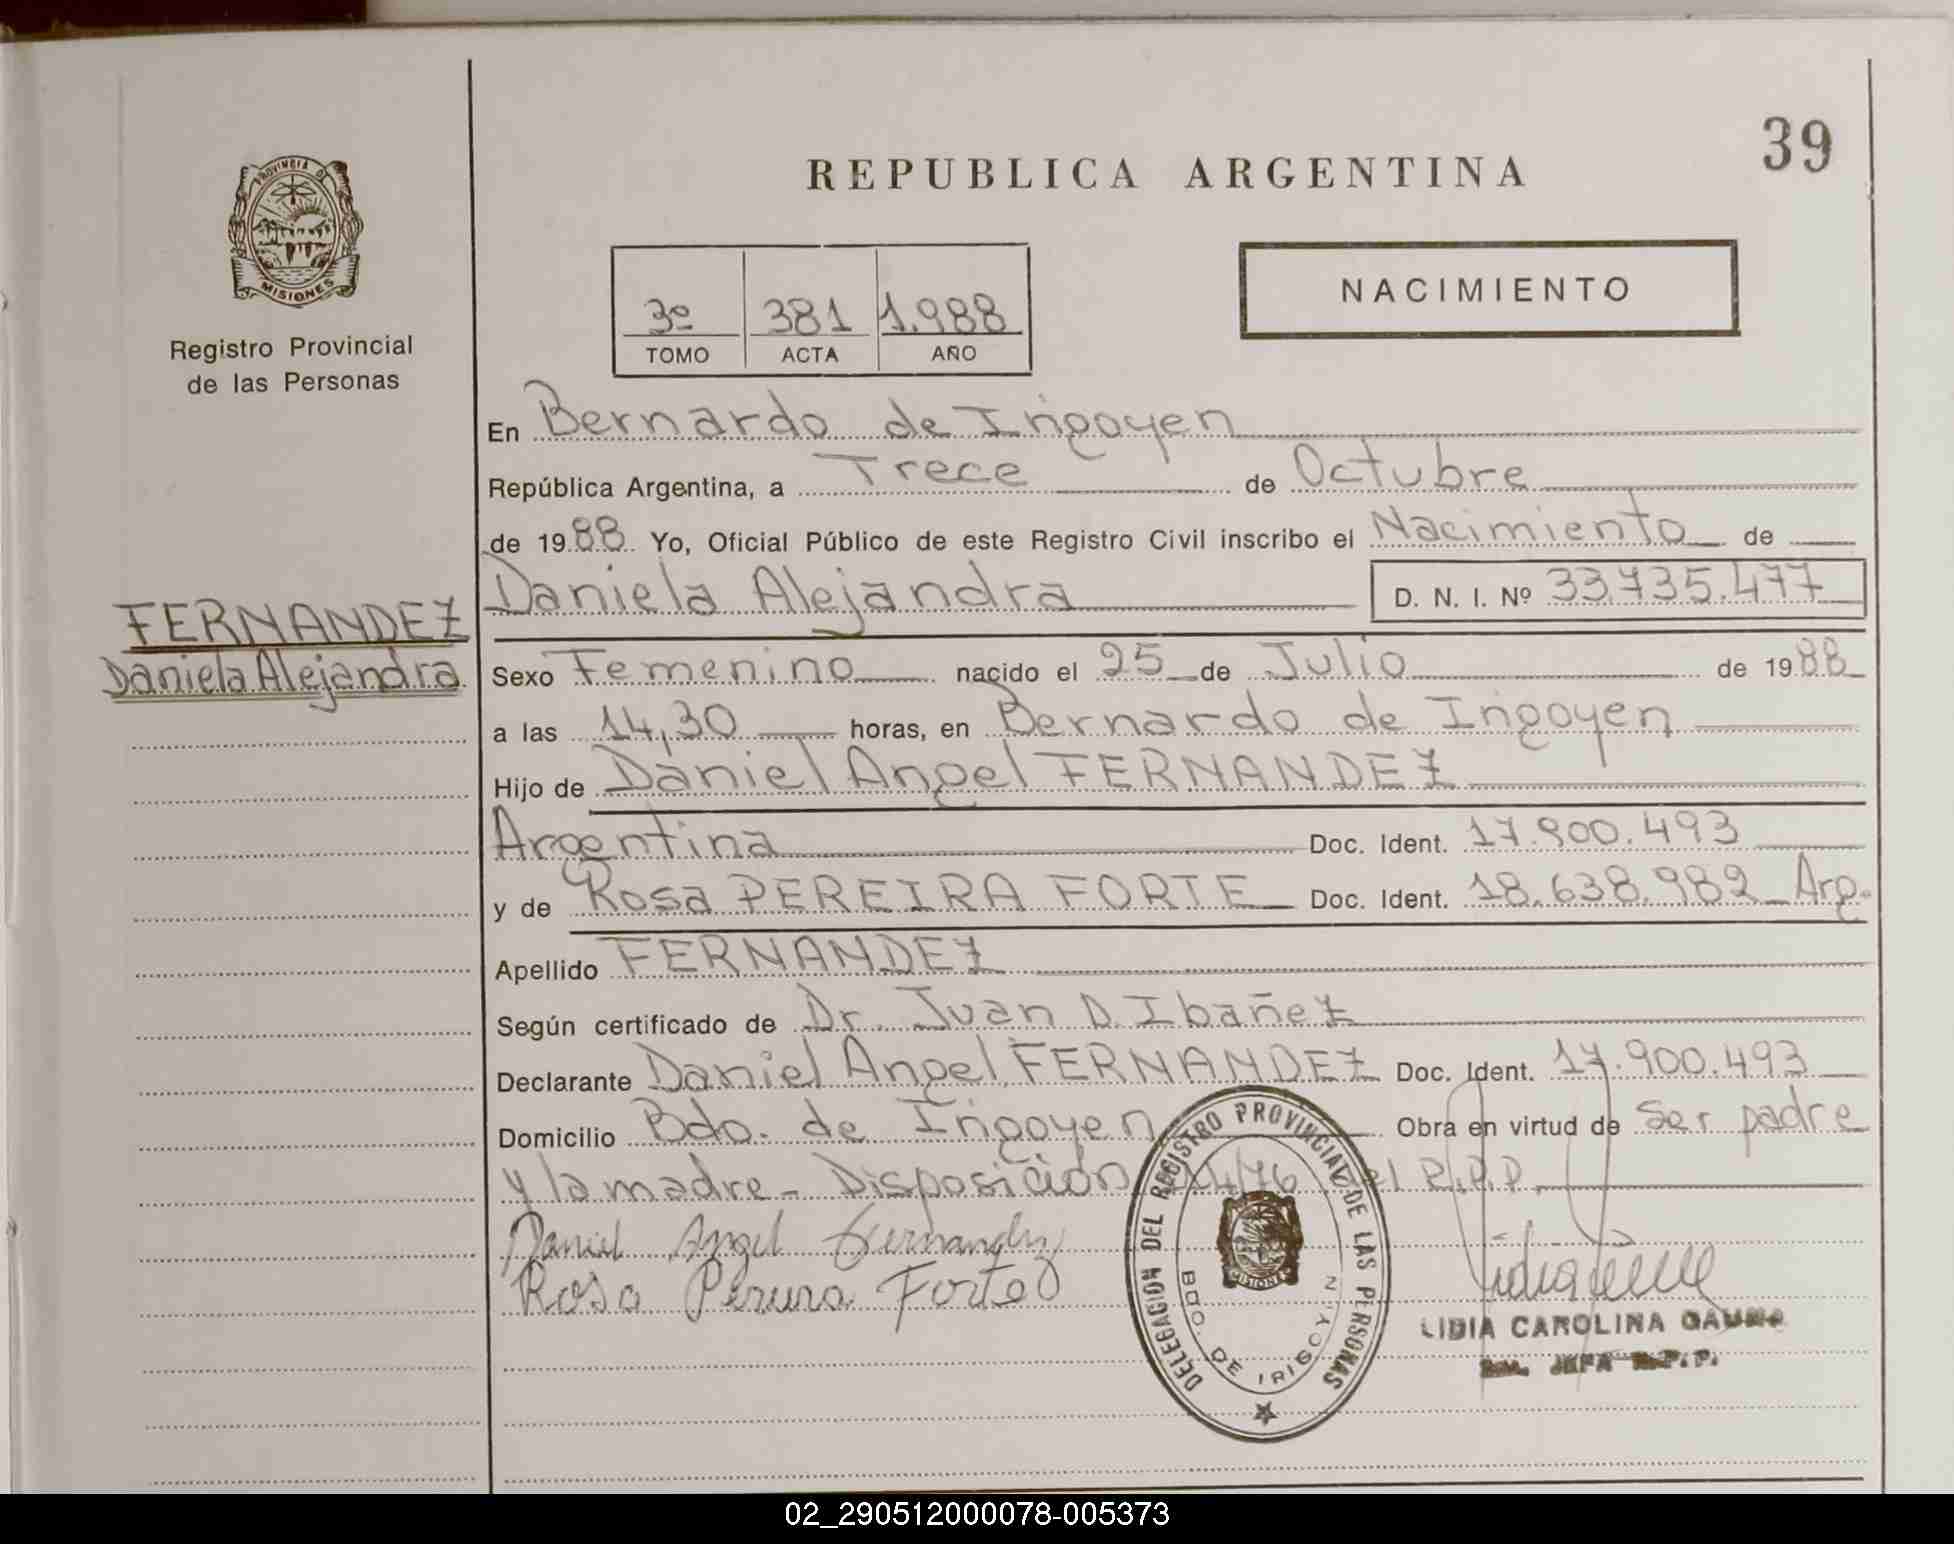 PROVINCIA DE
MISIONES
Registro Provincial
de las Personas
FERNANDEZ
Daniela Alejandra
39
REPUBLICA ARGENTINA
3º 381 1.988
TOMO ACTA AÑO
NACIMIENTO
En Bernardo de Irigoyen
República Argentina, a Trece de Octubre
de 1988 Yo, Oficial Público de este Registro Civil inscribo el Nacimiento de
Daniela Alejandra D. N. I. Nº 33.735.477
Sexo Femenino nacido el 25 de Julio de 1988
a las 14,30 horas, en Bernardo de Irigoyen
Hijo de Daniel Angel FERNANDEZ
Argentina Doc. Ident. 17.900.493
y de Rosa PEREIRA FORTE Doc. Ident. 18.638.982 Arg.
Apellido FERNANDEZ
Según certificado de Dr. Juan D. Ibañez
Declarante Daniel Angel FERNANDEZ Doc. Ident. 17.900.493
Domicilio Bdo. de Irigoyen Obra en virtud de ser padre
y la madre - Disposición del R.P.P.
Daniel Angel Fernandez
Rosa Pereira Forte
DELEGACION DEL REGISTRO PROVINCIAL DE LAS PERSONAS
MISIONES
BDO. DE IRIGOYEN
LIDIA CAROLINA
JEFA R.P.P.
02_290512000078-005373